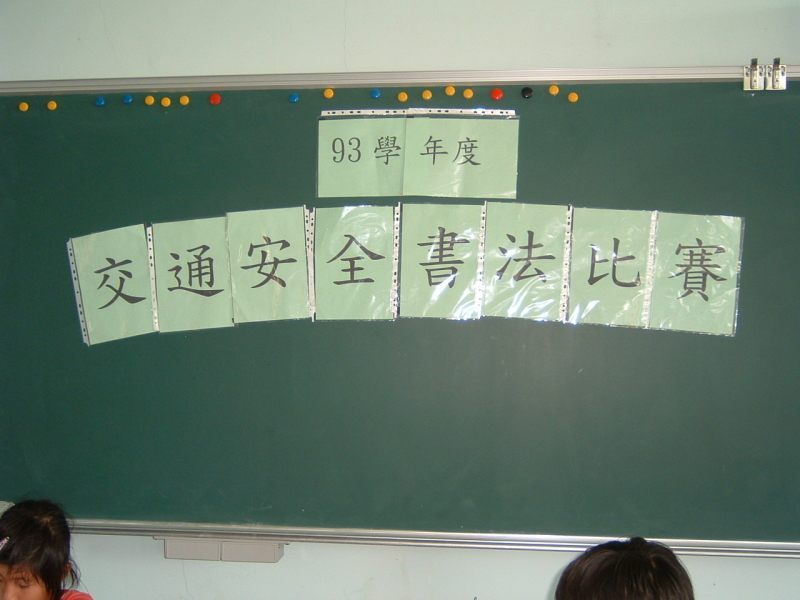 93學年度
交通安全書法比賽